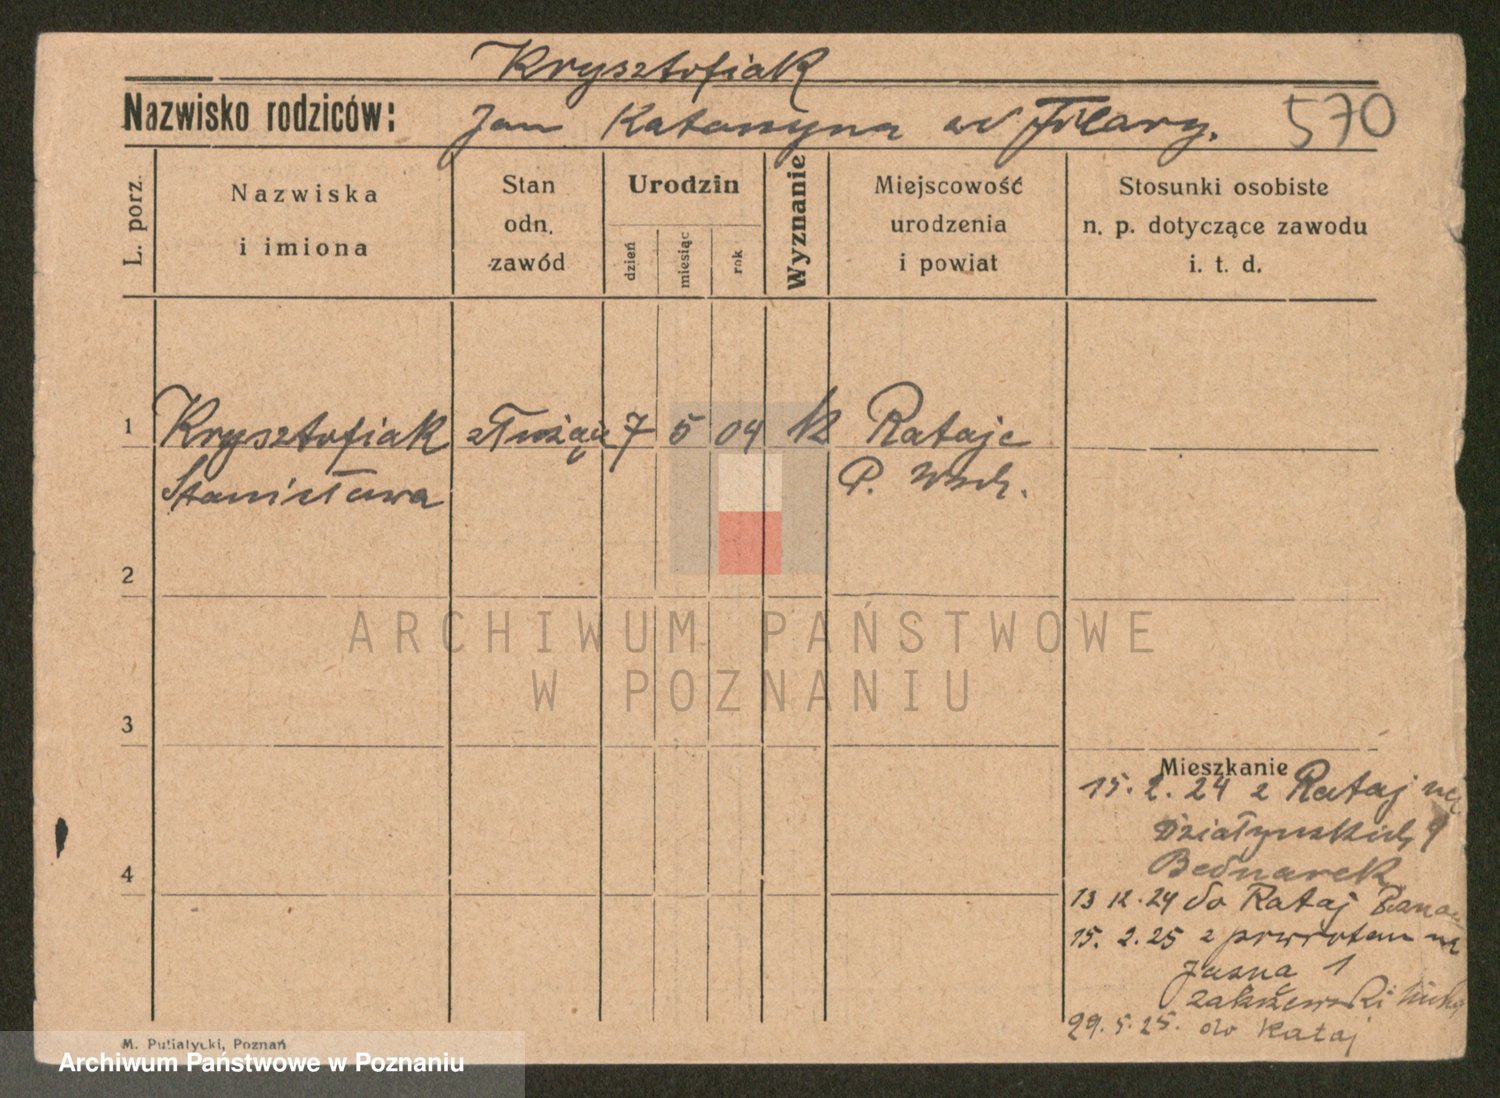 Krysztofiak
Nazwisko rodziców: Jan Katarzyna 570
L. porz.
Nazwiska
i imiona
Stan
odn.
zawód
Urodzin
dzień
miesiąc
rok
Wyznanie
Miejscowość
urodzenia
i powiat
Stosunki osobiste
n. p. dotyczące zawodu
i. t. d.
1 Krysztofiak służąca 7 5 04 k Rataje
Stanisława P. Wsch.
2
3
4
ARCHIWUM PAŃSTWOWE
W POZNANIU
Mieszkanie
15.2.24 z Rataj na
Działyńskich 9
Bednarek
13 12.24 do Rataj
15. 2.25 z powrotem na
Jasna 1
Zakrzewski
29.5.25. do Rataj
M. Putiatycki, Poznań
Archiwum Państwowe w Poznaniu